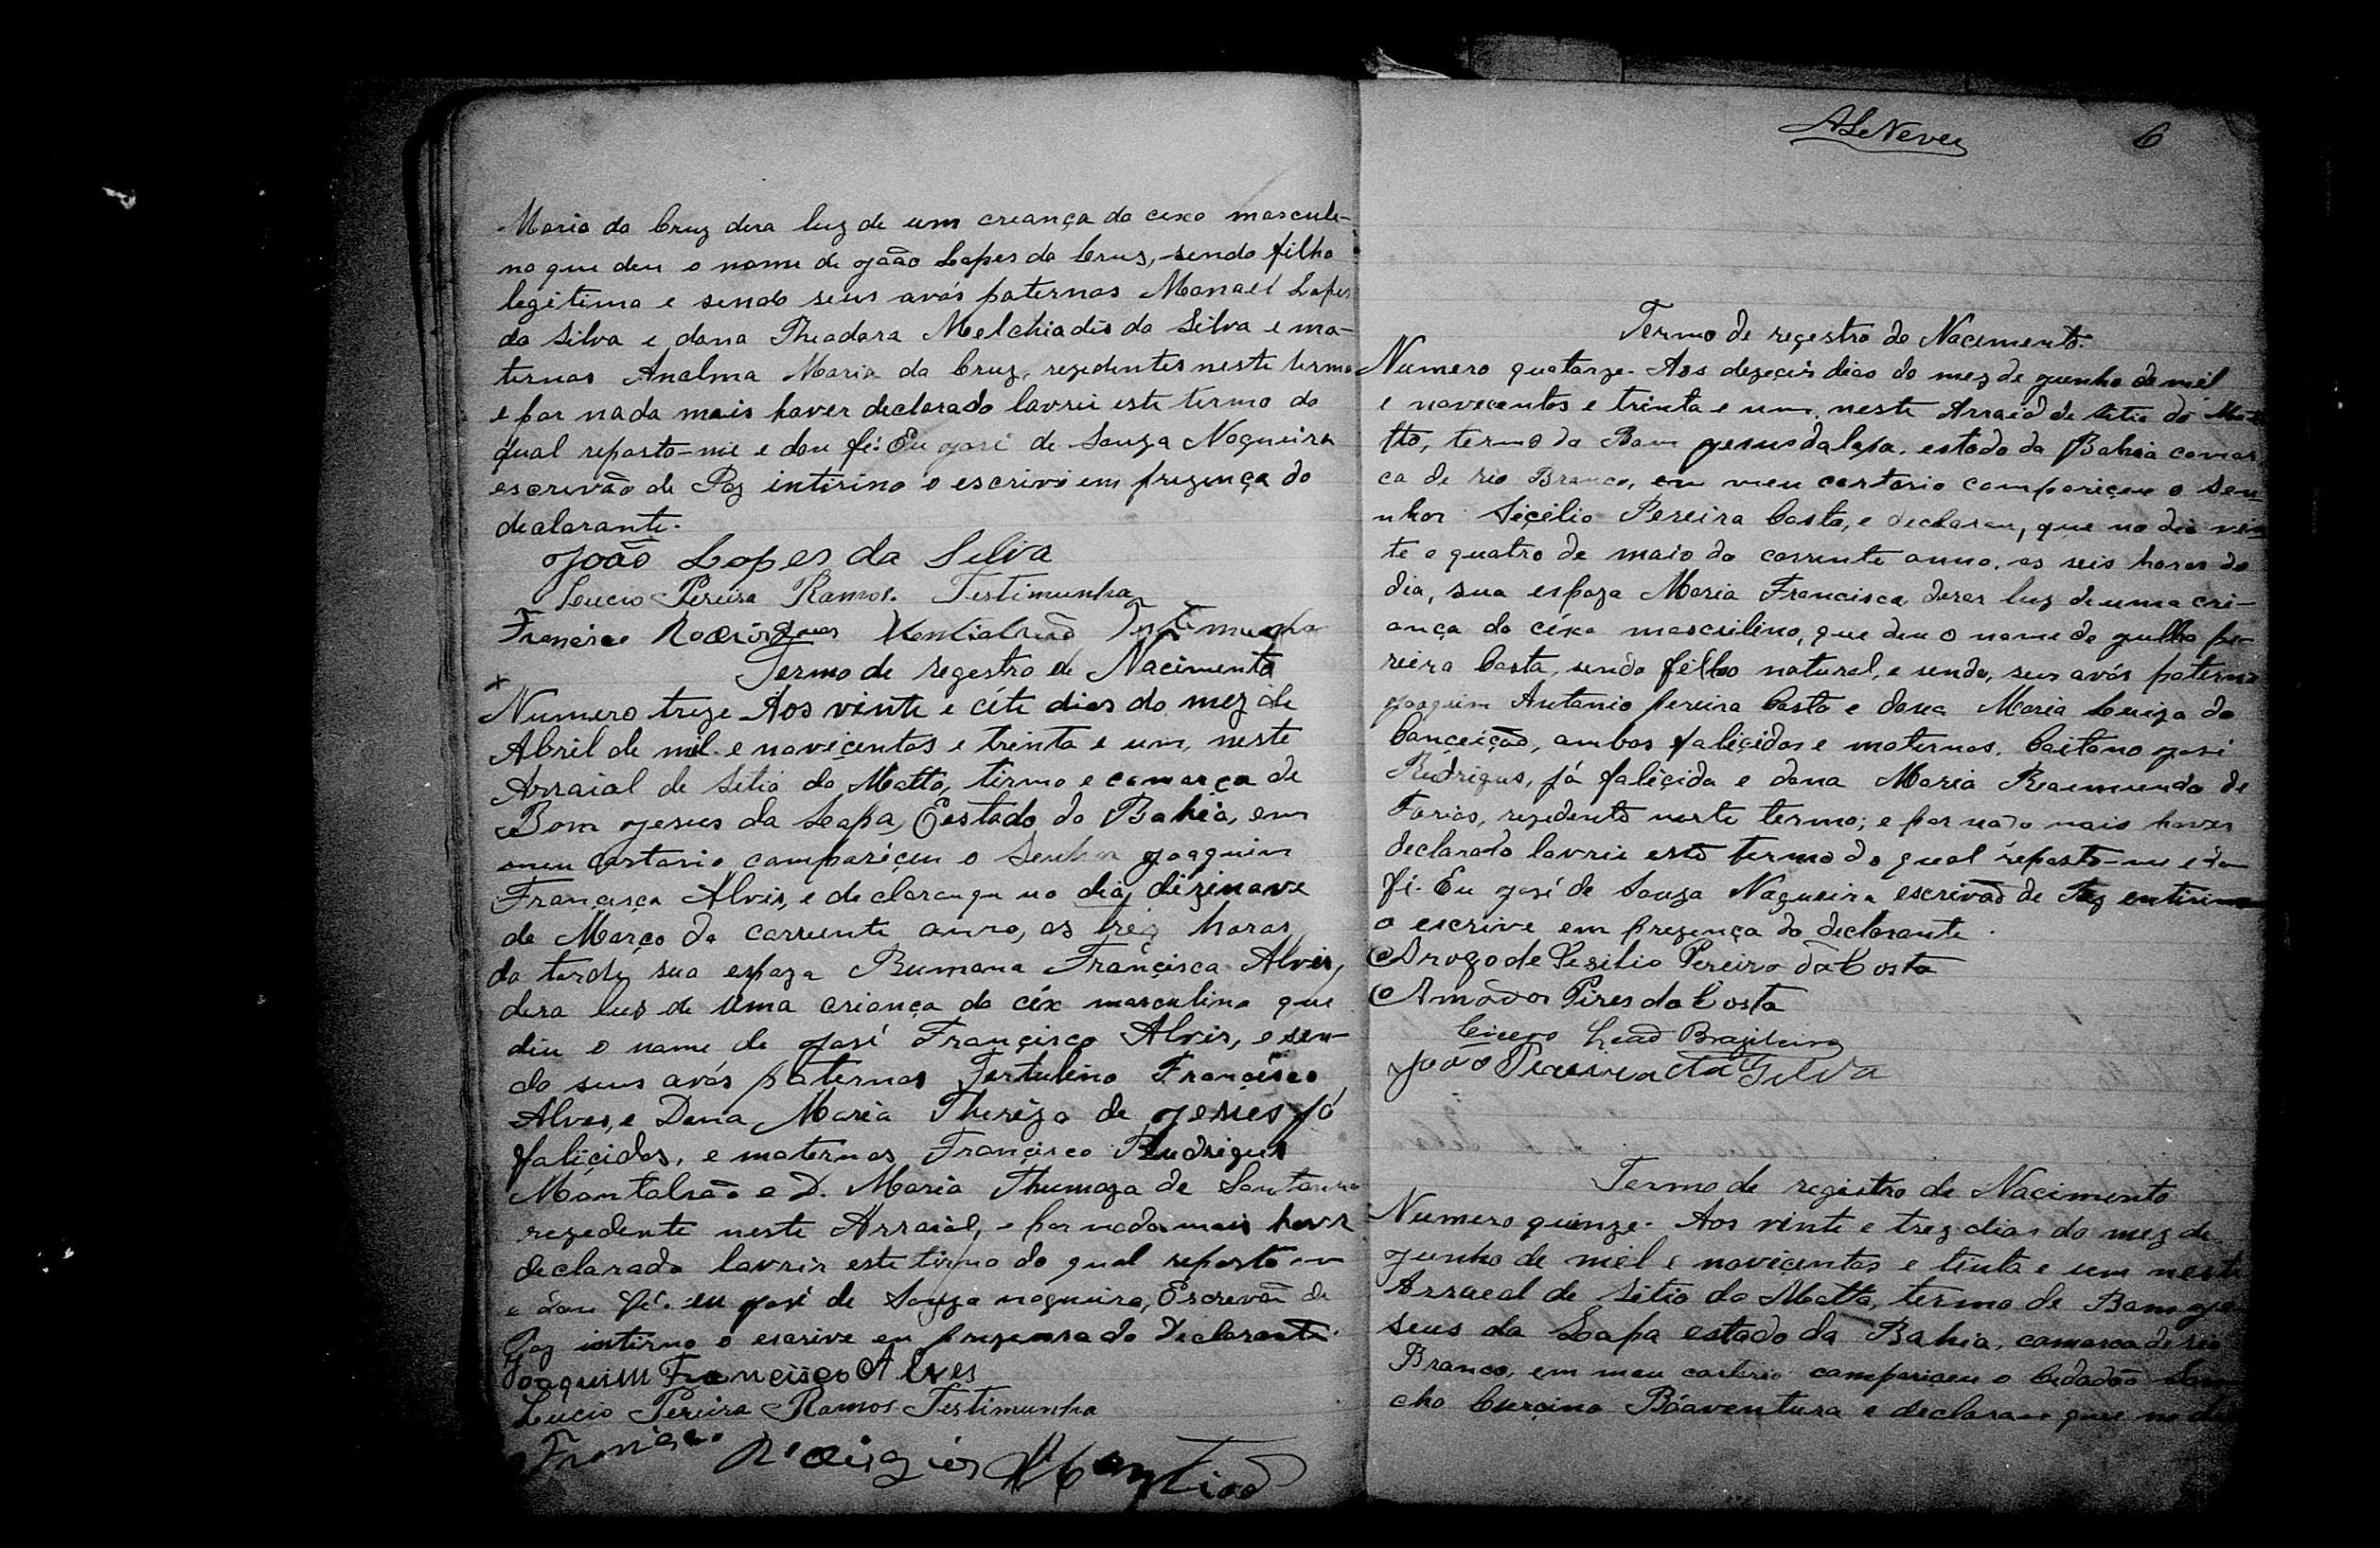 Maria da Cruz dera luz de um creança do cexo mascule-
no que deu o nome de João Lopes da Crus, sendo filho
legitimo e sendo seus avós paternos Manael Lopes
da Silva e dona Theadora Melchiadis da Silva e ma-
ternos Anelma Maria da Cruz, rezedentes neste termo
e por nada mais haver declarado lavrei este termo do
qual reporto-me e dou fé. Eu José de Souza Nogueira
escrivão de Paz intirino o escrivi em prezença do
dealarante.
João Lopes da Silva
Lucio Pereira Ramos. Testimunha
Francisco Rodrigues Testimunha
Termo de regestro de Nacimento
Numero treze Aos vinte e céte dias do mez de
Abril de mil e noviçentos e trinta e um, neste
Arraial de Sitio do Matto, tirmo e comarça de
Bom Jesus da Leapa, Eestado da Bahia, em
meu cartorio compariçeu o Senhor Joaquim
Françisca Alvis, e declarou que no dia dizinove
de Março do corrente anno, as trez horas
da tarde, sua espoza Rumana Françisca Alvis,
dera lus de uma criança do céx masculino que
diu o name de José Françisco Alvis, e sen-
do seus avós paternos Tertulino Françisco
Alves, e Dona Maria Thereza de Jesus já
faliçidos, e maternos Françisco Rudrigues
Mantalvão e D. Maria Thumaza de Santanna
rezedente neste Arraial, e por nada mais haver
declarado lavrir este tirmo do qual reporto-m
e dou fé. eu José de Souza nogueira, Escrevão de
Paz intirno o escrive em prezensa do Declarante.
Joaquim Francisco Alves
Lucio Pereira Ramos Testimunha
Francisco
ALNeves 6
Termo de regestro de Nacemento.
Numero quatorze. Aos dezeçeis dias do mez de Junho de mil
e novecentos e trinta e um, neste Arraial de Sitio do Mat
tto, termo da Bom Jesus da Lapa, estado da Bahia comar
ca de rio Branco, em meu cartorio compariçeu o Sen
nhor Siçilio Pereira Costa, e declarou, que no dia vin
te e quatro de maio do corrente anno, as seis horas do
dia, sua espoza Maria Francisca derar luz de uma cri-
ança do céxo masculino, que deu o nome de Julho pe-
reira Costa, sendo filho natural, e sendo, seus avós paterno
Joaquim Antonio pereira Costa e dona Maria Luiza da
Conçeição, ambos faliçidos e maternos, Caitano José
Rudrigus, já faliçido e dona Maria Raemunda de
Farias, rezedente neste termo; e por nada mais haver
declarado lavrei este termo do qual reporto-me e dou
fé. Eu José de Souza Nogueira escrivão de Paz entirino
o escrive em prezença do declarante.
Arogo de Sesilio Pereira da Costa
Amador Pires da Costa
Cicero Leão Brazileiro
João da Silva
Termo de registro de Nacimento
Numero quinze. Aos vinte e trez dias do mez de
Junho de mil e noviçentos e tinta e um neste
Arraeal de Sitio do Matto, termo de Bom Je
seus da Lapa estado da Bahia, comarca de rio
Branco, em meu cartorio compariçeu o Cidadão
cho Curçino Bóaventura e declarou que no di